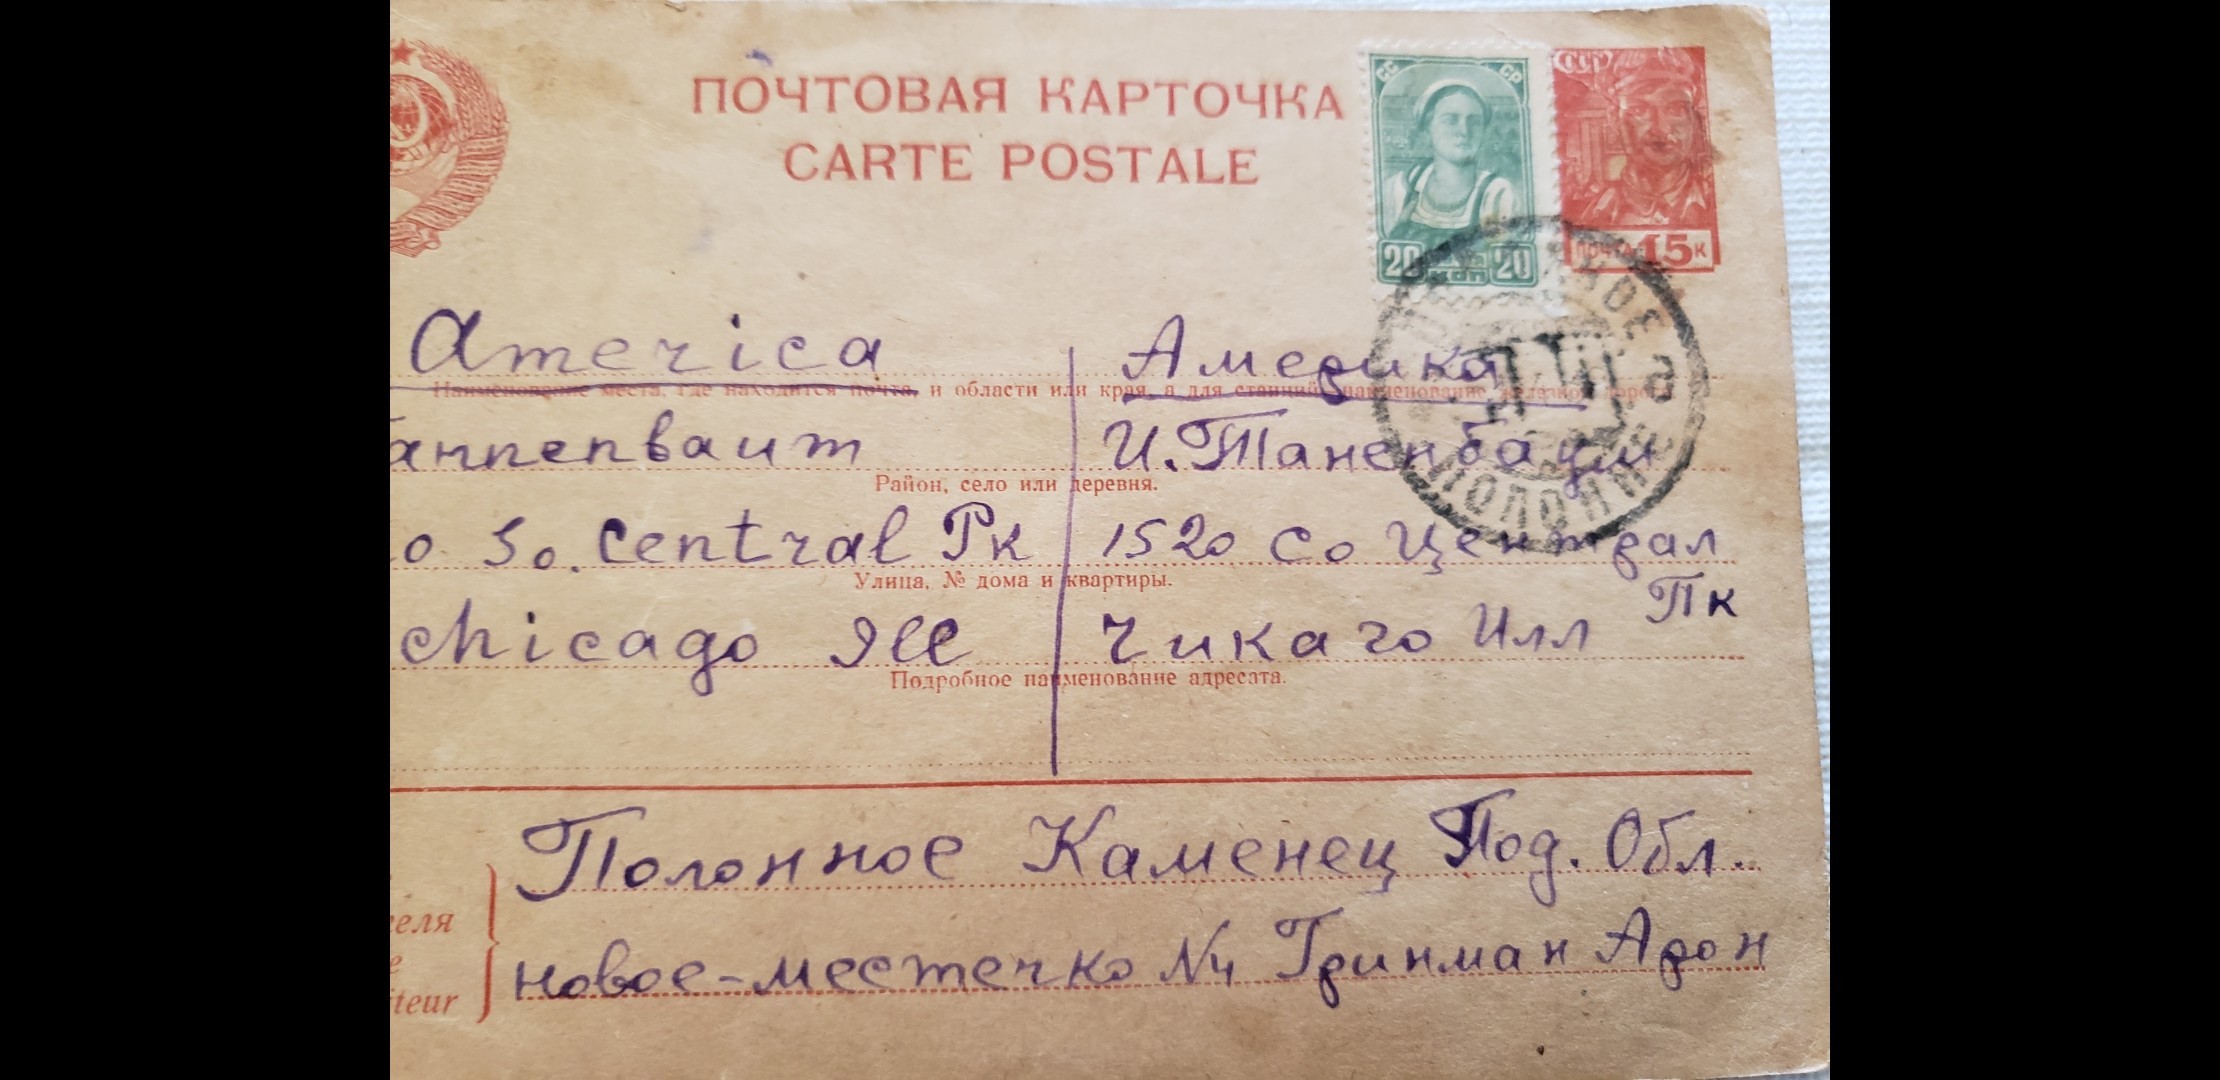 ПОЧТОВАЯ КАРТОЧКА
CARTE POSTALE
СС СР
20 КОП 20
СССР
ПОЧТА 15 К
America
Америка
Наименование места, где находится почта, и области или края, а для станций наименование железной дороги
аннепваит
И. Таненбаум
Район, село или деревня.
ПОЛОННОЕ
ПОЛОННЕ
о So. Central Pk
1520 Со Централ
Пк
Улица, № дома и квартиры.
Chicago Ill
Чикаго Илл
Подробное наименование адресата.
Полонное Каменец Под. Обл.
еля
e
iteur
новое-местечко N4 Гринман Арон